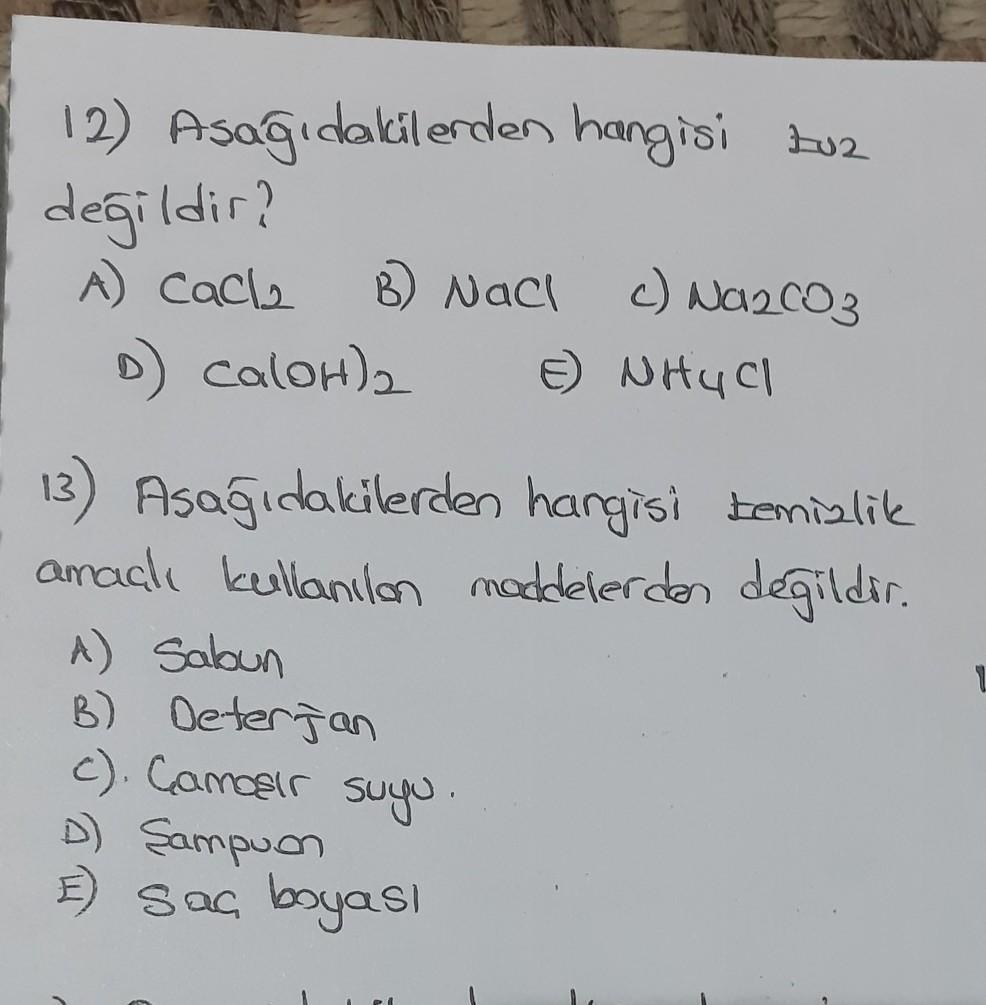 12) Asağıdakilerden hangisi tuz
değildir?
A) CaCl2 B) NaCl C) Na2CO3
D) Ca(OH)2 E) NH4Cl
13) Asağıdakilerden hangisi temizlik
amaclı kullanılan maddelerden değildir.
A) Sabun
B) Deterjan
C). Camasır suyu.
D) Şampuan
E) Saç boyası